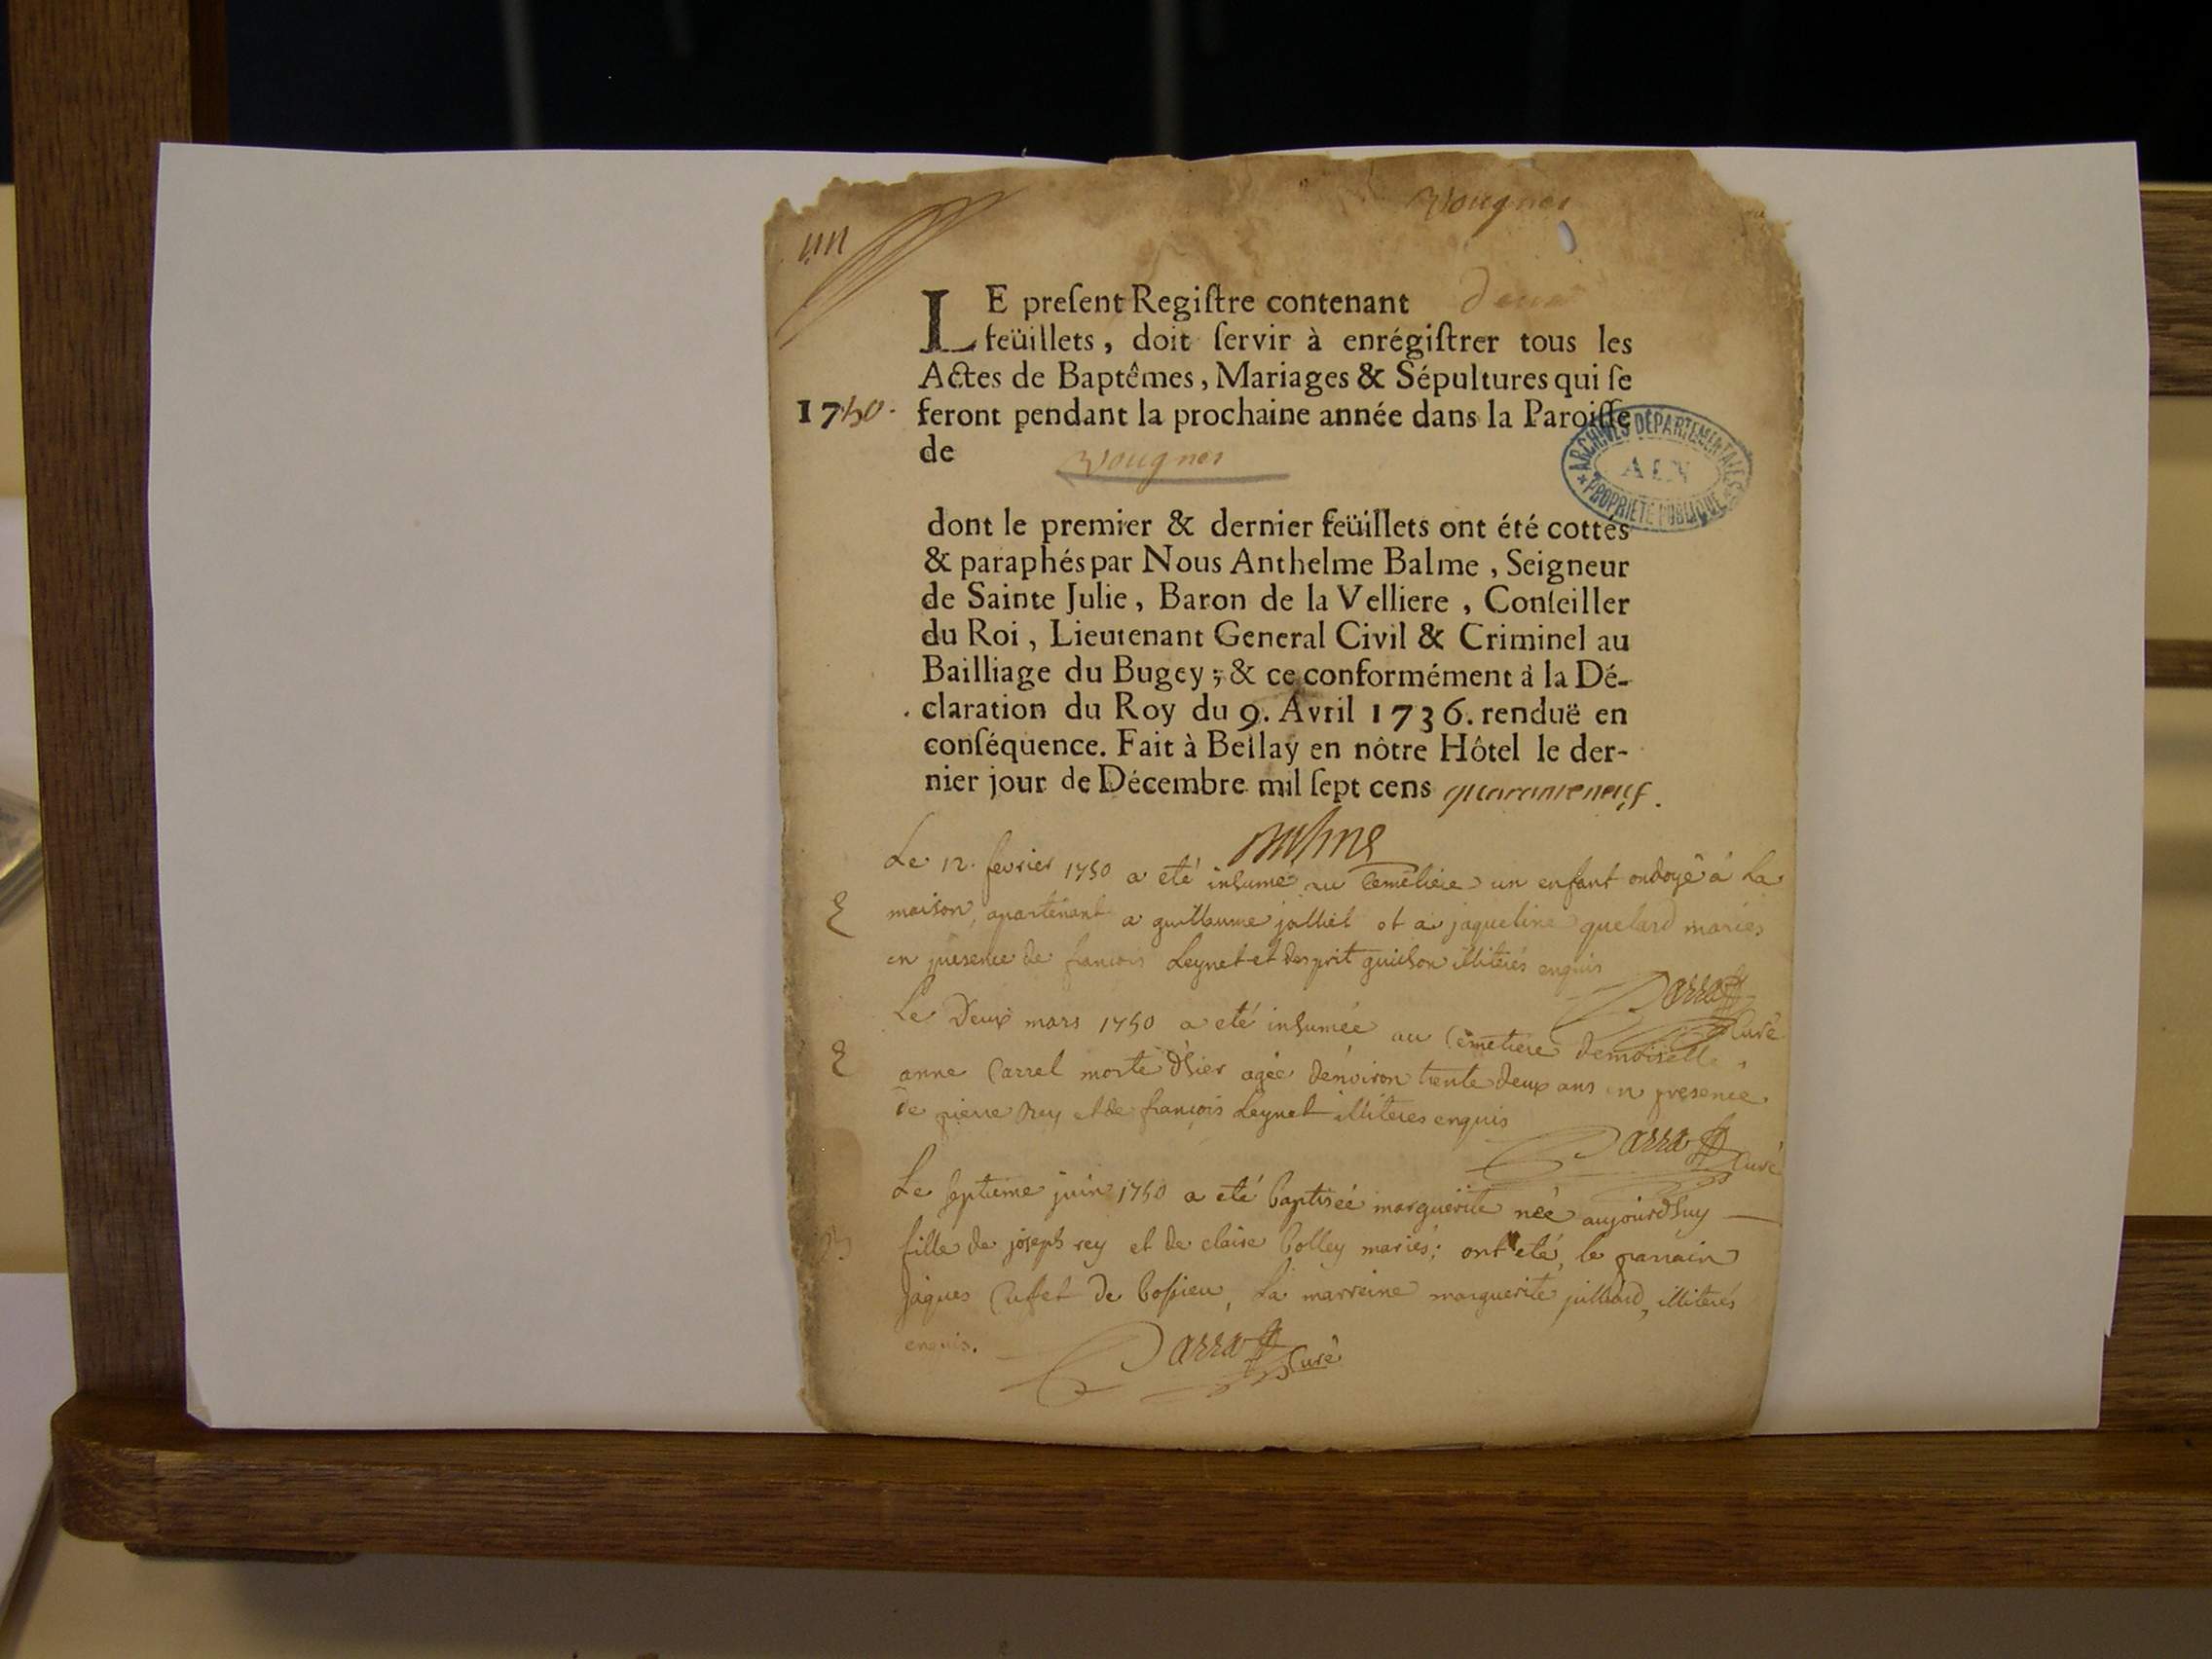 un
Vougnes
LE preſent Regiſtre contenant deux
feüillets, doit ſervir à enrégiſtrer tous les
Actes de Baptêmes, Mariages & Sépultures qui ſe
1750. feront pendant la prochaine année dans la Paroiſſe
de Vougnes
ARCHIVES DÉPARTEMENTALES
AIN
PROPRIÉTÉ PUBLIQUE
dont le premier & dernier feüillets ont été cottés
& paraphés par Nous Anthelme Balme, Seigneur
de Sainte Julie, Baron de la Velliere, Conſeiller
du Roi, Lieutenant General Civil & Criminel au
Bailliage du Bugey; & ce conformément à la Dé-
claration du Roy du 9. Avril 1736. renduë en
conſéquence. Fait à Bellay en nôtre Hôtel le der-
nier jour de Décembre mil ſept cens quaranteneuf.
Balme
Le 12. fevrier 1750 a eté inhumé au Cemêtiere un enfant ondoyé a La
maison, apartenant a guillaume jolliet et a jaqueline quelard mariés
en presence de francois Leynet et desprit guichon illiterés enquis
Darra Curé
Le Deux mars 1750 a eté inhumée au Cemetiere demoiselle
anne Carrel morte d'hier agée denviron trente deux ans en presence
de pierre Rey et de françois Leynet illiteres enquis
Darra Curé
Le septieme juin 1750 a eté baptisée marguerite née aujourdhuy
B fille de joseph rey et de claire bolley mariés; ont eté, le parrain
jaques Cufet de bossieu, La marreine marguerite julliard, illiterés
enquis.
Darra Curé